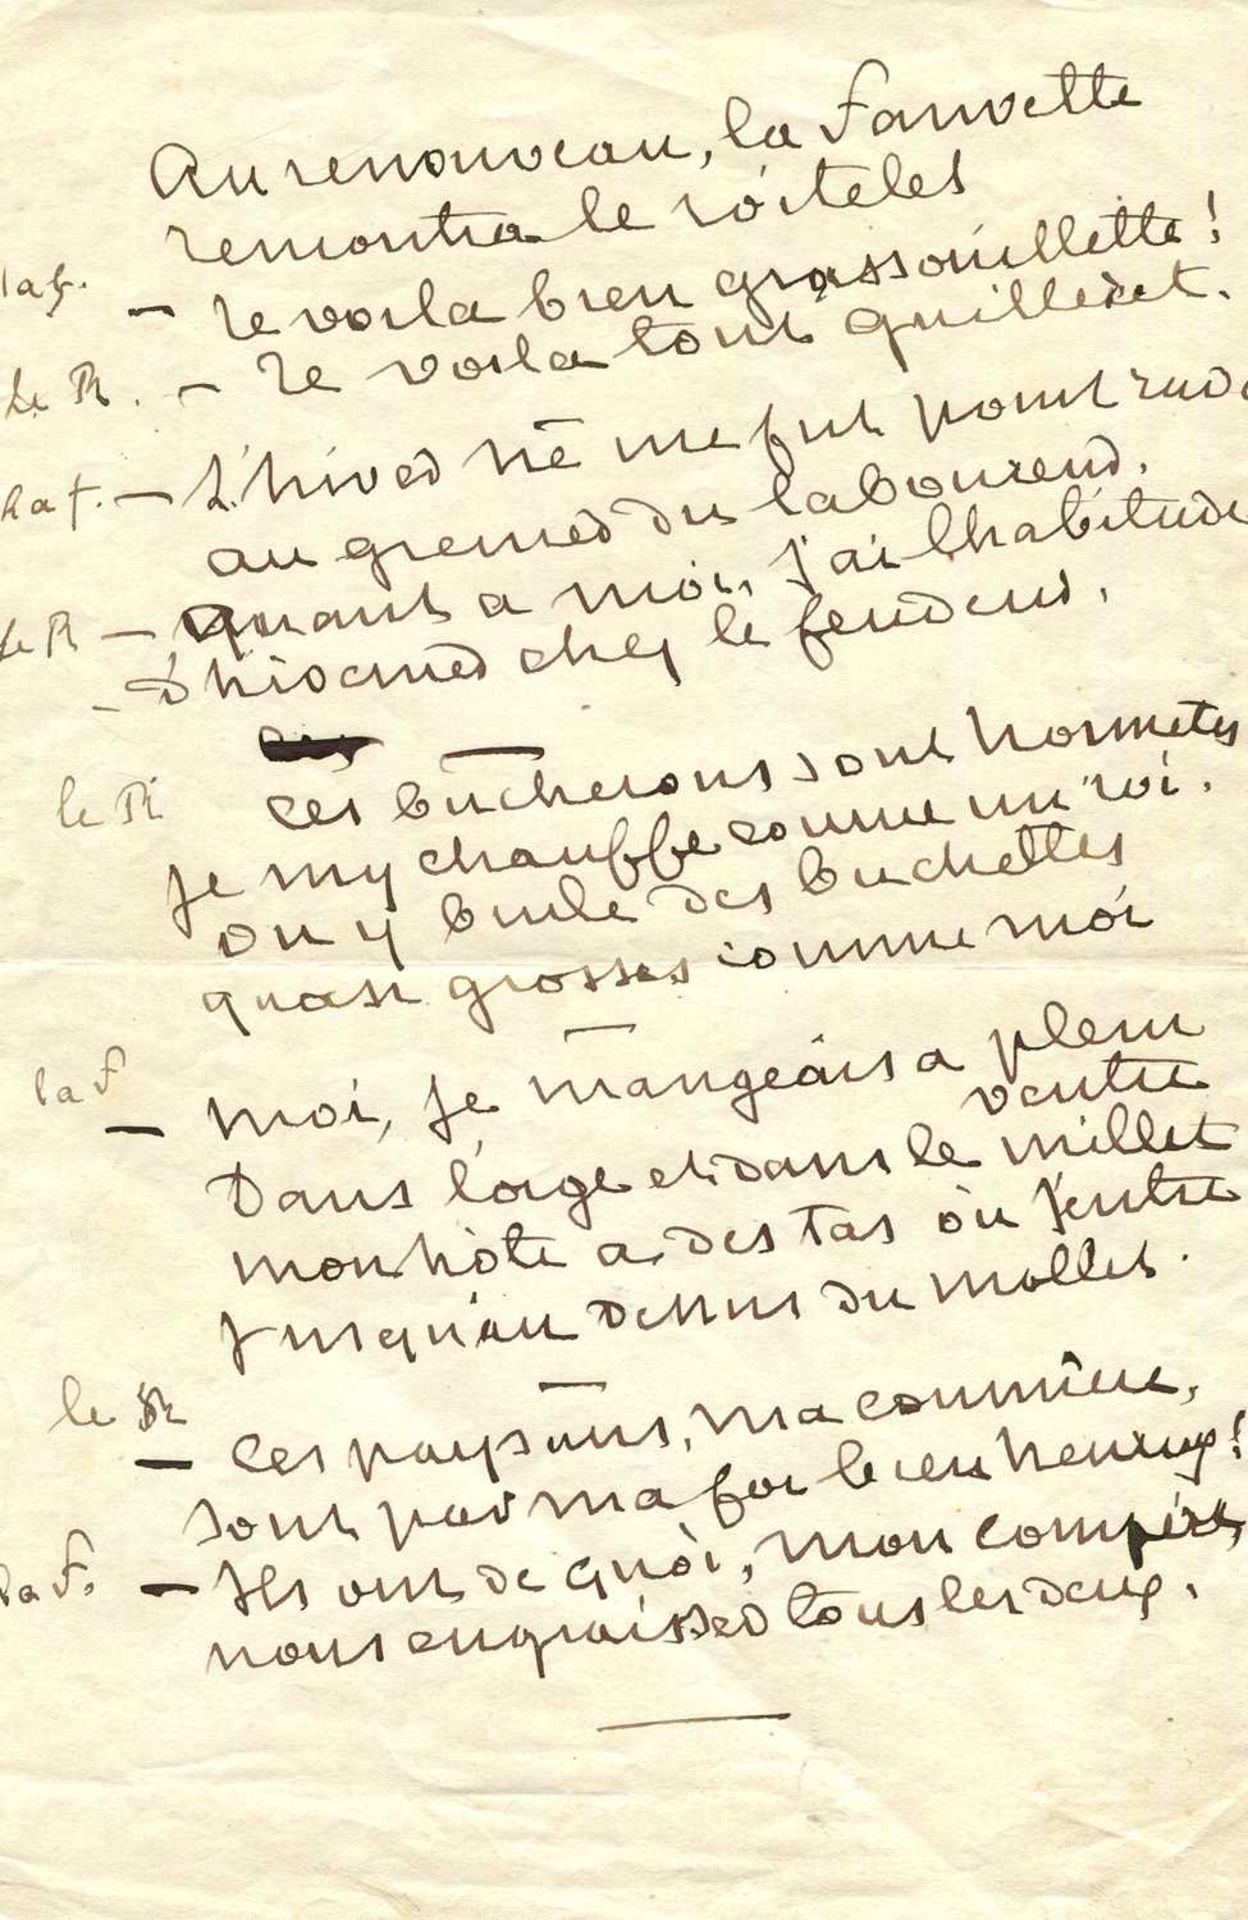 Au renouveau, la Fauvette
rencontra le roitelet
la f. — Te voila bien grassouillette !
Le R. — Te voila tout guilleret.
La f. — L'hiver ne me fut point rude
au grenier du laboureur.
Le R — Quant a moi, j'ai l'habitude
- d'hiverner chez le fendeur.
le R Ces bûcherons sont honnetes
Je m'y chauffe comme un roi.
On y brule des buchettes
quasi grosses comme moi
la F — Moi, je mangeais a plein
ventre
Dans l'orge et dans le millet
mon hôte a des tas où j'entre
Jusqu'au dessus du mollet.
le R — Ces paysans, ma commère,
sont par ma foi bien heureux !
la F. — Ils ont de quoi, mon compère,
nous engraisser tous les deux.